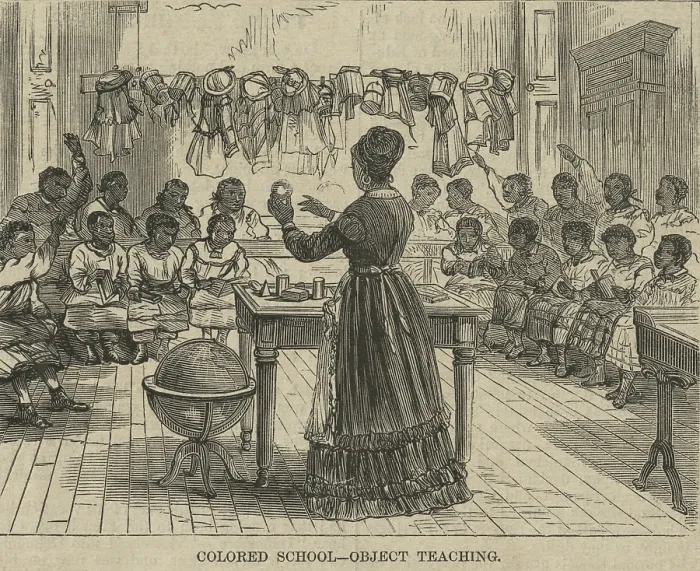 COLORED SCHOOL—OBJECT TEACHING.